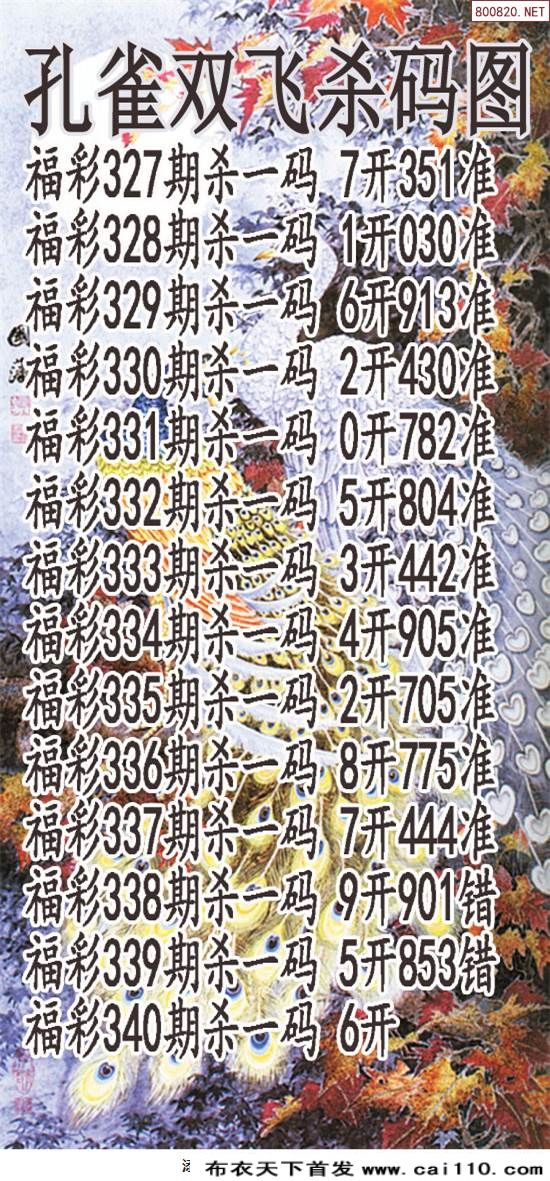 800820.NET
孔雀双飞杀码图
福彩327期杀一码 7开351准
福彩328期杀一码 1开030准
福彩329期杀一码 6开913准
福彩330期杀一码 2开430准
福彩331期杀一码 0开782准
福彩332期杀一码 5开804准
福彩333期杀一码 3开442准
福彩334期杀一码 4开905准
福彩335期杀一码 2开705准
福彩336期杀一码 8开775准
福彩337期杀一码 7开444准
福彩338期杀一码 9开901错
福彩339期杀一码 5开853错
福彩340期杀一码 6开
布衣天下首发 www.cai110.com